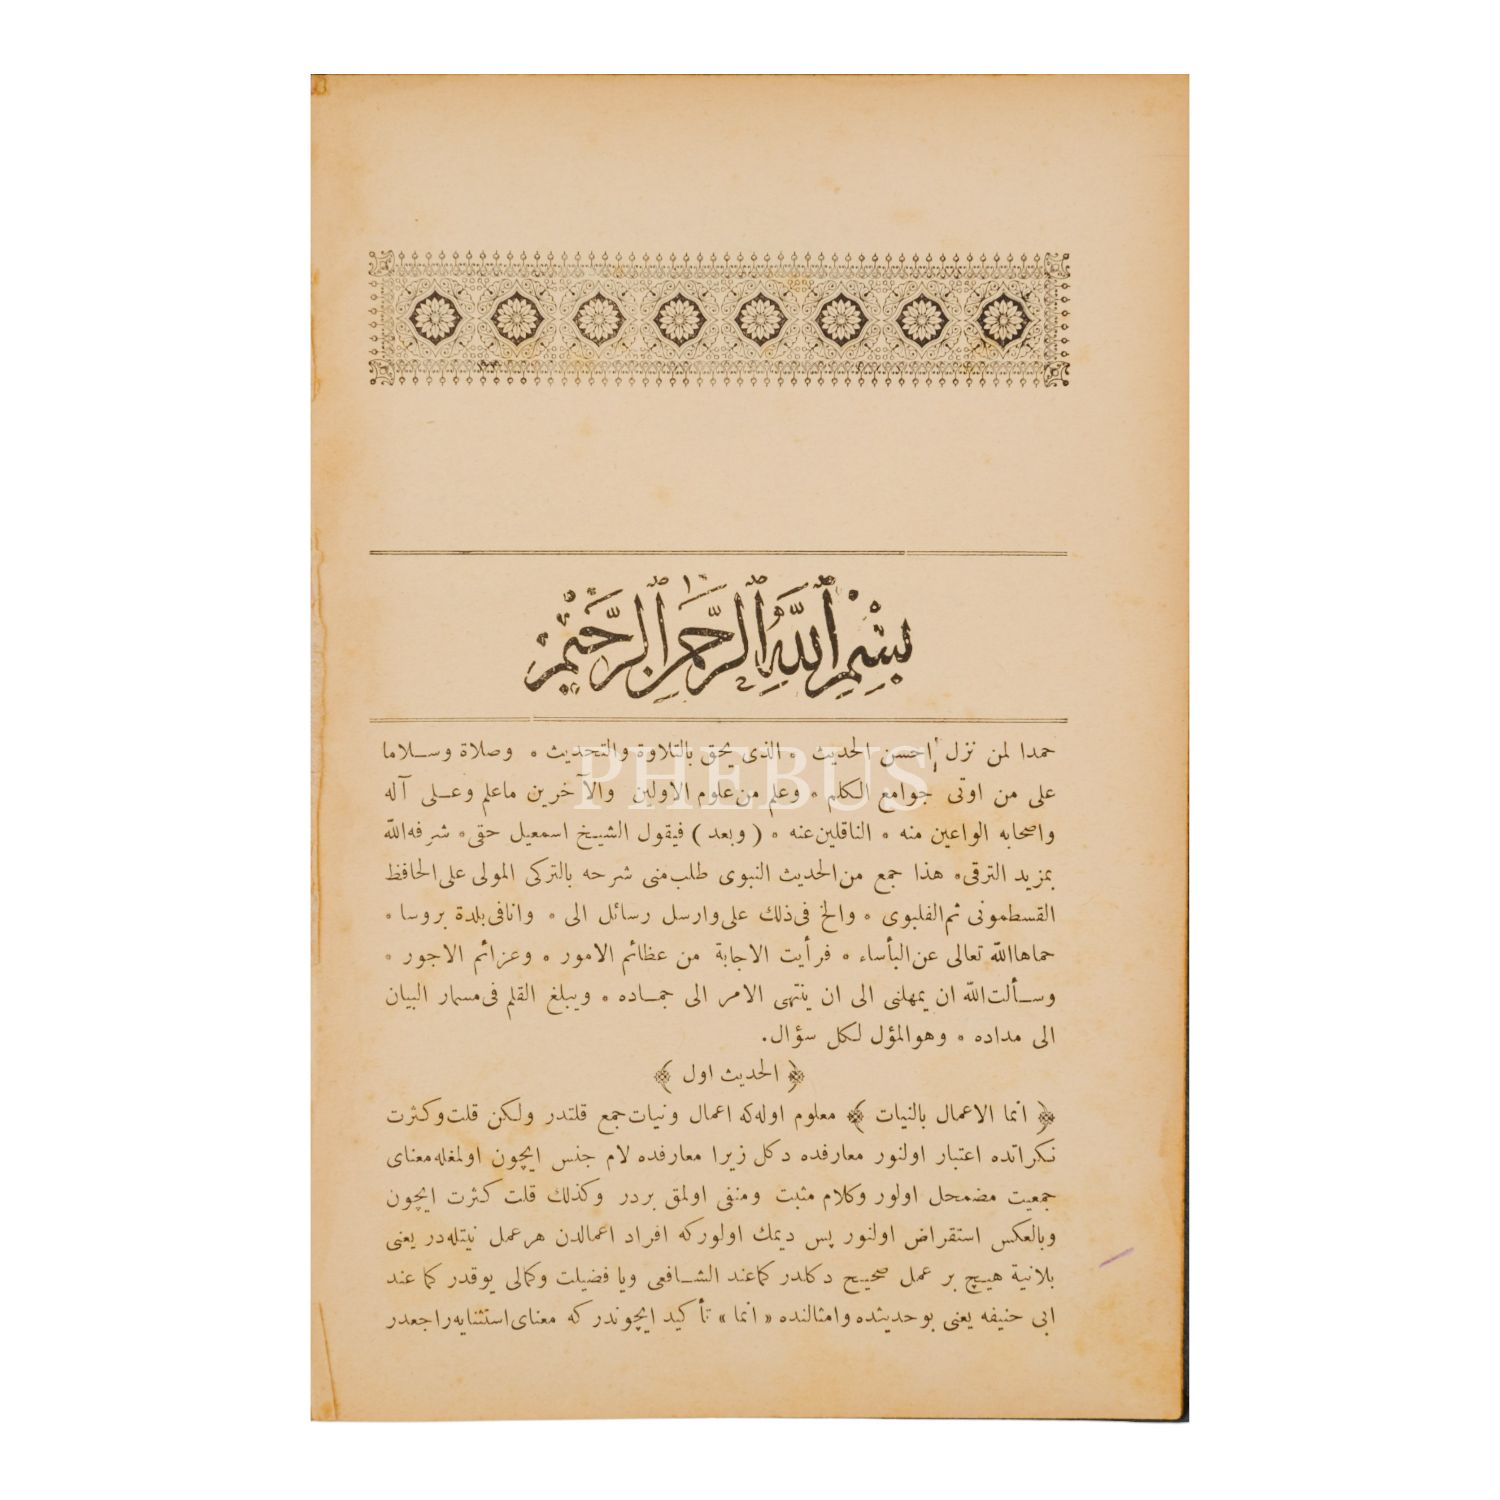 بسم الله الرحمن الرحيم
حمدا لمن نزل احسن الحديث ٥ الذى يحق بالتلاوة والتحديث ٥ وصلاة وسلاما
على من اوتى جوامع الكلم ٥ وعلم من علوم الاولين والآخرين ماعلم وعلى آله
واصحابه الواعين منه ٥ الناقلين عنه ٥ (وبعد) فيقول الشيخ اسمعيل حقى ٥ شرفه الله
بمزيد الترقى ٥ هذا جمع من الحديث النبوى طلب منى شرحه بالتركى المولى على الحافظ
القسطمونى ثم الفلبوى ٥ والح فى ذلك على وارسل رسائل الى ٥ وانا فى بلدة بروسا ٥
حماها الله تعالى عن البأساء ٥ فرأيت الاجابة من عظائم الامور ٥ وعزائم الاجور ٥
وسألت الله ان يمهلنى الى ان ينتهى الامر الى جماده ٥ ويبلغ القلم فى مسمار البيان
الى مداده ٥ وهو المؤل لكل سؤال.
﴿ الحديث اول ﴾
﴿ انما الاعمال بالنيات ﴾ معلوم اوله كه اعمال ونيات جمع قلتدر ولكن قلت وكثرت
نكراتده اعتبار اولنور معارفده دكل زيرا معارفده لام جنس ايچون اولمغله معناى
جمعيت مضمحل اولور وكلام مثبت ومنفى اولمق بردر وكذلك قلت كثرت ايچون
وبالعكس استقراض اولنور پس ديمك اولور كه افراد اعمالدن هر عمل نيتله در يعنى
بلانية هيچ بر عمل صحيح دكلدر كما عند الشافعى ويا فضيلت وكمالى يوقدر كما عند
ابى حنيفه يعنى بو حديثده وامثالنده «انما» تأكيد ايچوندر كه معناى استثنايه راجعدر
PHEBUS